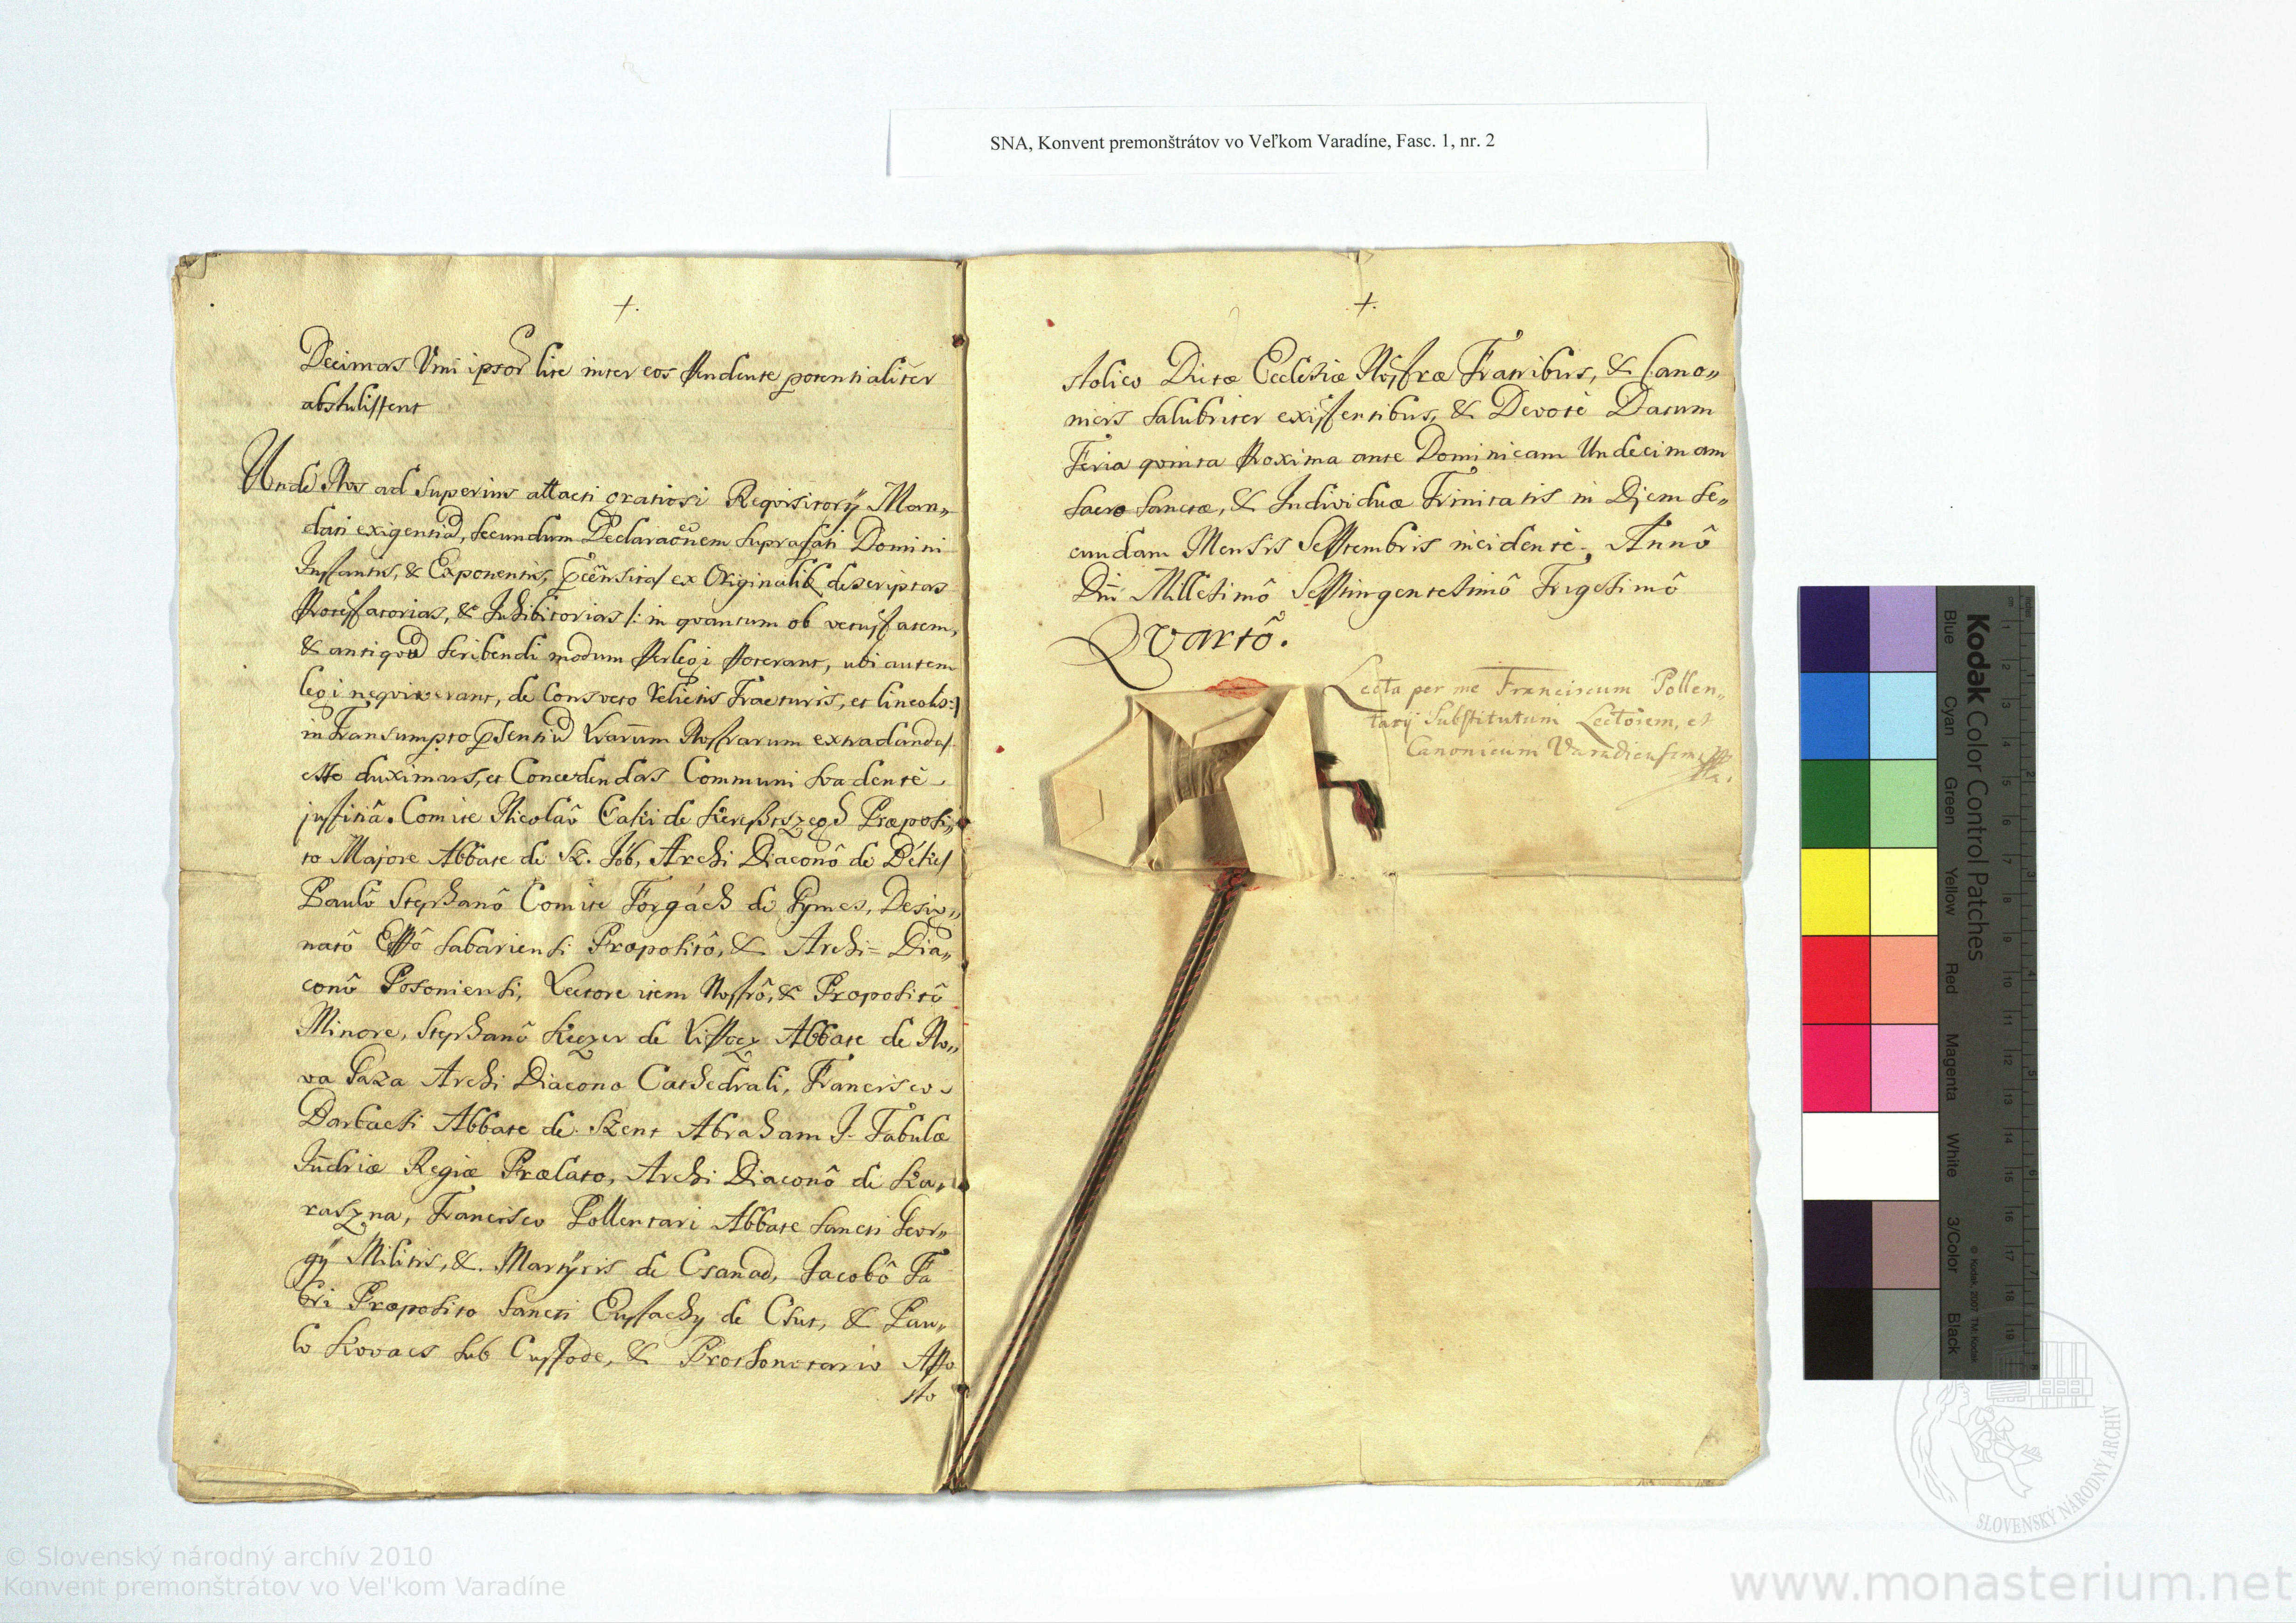 SNA, Konvent premonštrátov vo Veľkom Varadíne, Fasc. 1, nr. 2
+.
Decimas Vini ipsor lite inter eos pendente potentialiter
abstulissent
Unde Nos ad Superius attacti gratiosi Reqvisitorÿ Man„
dati exigentia, Secundum Declaraōnem Suprafati Domini
Instantis, & Exponentis, ex Originalib descriptas
Protestatorias, & Inhibitorias /: in qvantum ob vetustatem,
& antiqvu Scribendi modum perlegi poterant, ubi autem
legi neqviverant, de Consveto relictis Fracturis, et lineolis :/
in Transumpto Nostrarum extradandas
esse duximus, et Concedendas Communi Svadente
justitiâ. Comite Nicolaô Csáki de Kereßtszegh Præposi„
to Majore Abbate de Sz. Jób, Archi Diaconô de Békes
Paulô Stephanô Comite Forgách de Gymes, Desig„
natô Eppô Sabariensi Præpositô, & Archi= Dia„
conô Posoniensi, Lectore item Nostrô, & Præpositô
Minore, Stephanô Keczer de Lipócz Abbate de No„
va Gaza Archi Diacono Cathedrali, Francisco
Barkaczi Abbate de Szent Abraham I. Tabulæ
Iudriæ Regiæ Prælato, Archi Diaconô de Ka„
raszna, Francisco Pollentari Abbate Sancti Geor„
gÿ Militis, & Martÿris de Csanad, Jacobô Fa
bri Præposito Sancti Eustachy de Csut, & Pau„
lo Kovacs Sub Custode, & Prothonotario Apo
sto
+.
stolico Dictæ Ecclesiæ Nostræ Fratribus, & Cano„
nicis Salubriter existentibus, & Devotè Datum
Feria qvinta Proxima ante Dominicam Undecimam
Sacro Sanctæ, & Individuæ Trinitatis in Diem Se„
cundam Mensis Septembris incidente, Annô
Dni Millesimô Septingentesimô Trigesimô
Qvartô.
Lecta per me Franciscum Pollen„
tarÿ Substitutum Lectorem, et
Canonicum Varadiensem
Kodak Color Control Patches
Blue Cyan Green Yellow Red Magenta White 3/Color Black
© Kodak, 2007 TM: Kodak
SLOVENSKÝ NÁRODNÝ ARCHÍV
© Slovenský národný archív 2010
Konvent premonštrátov vo Veľkom Varadíne
www.monasterium.net